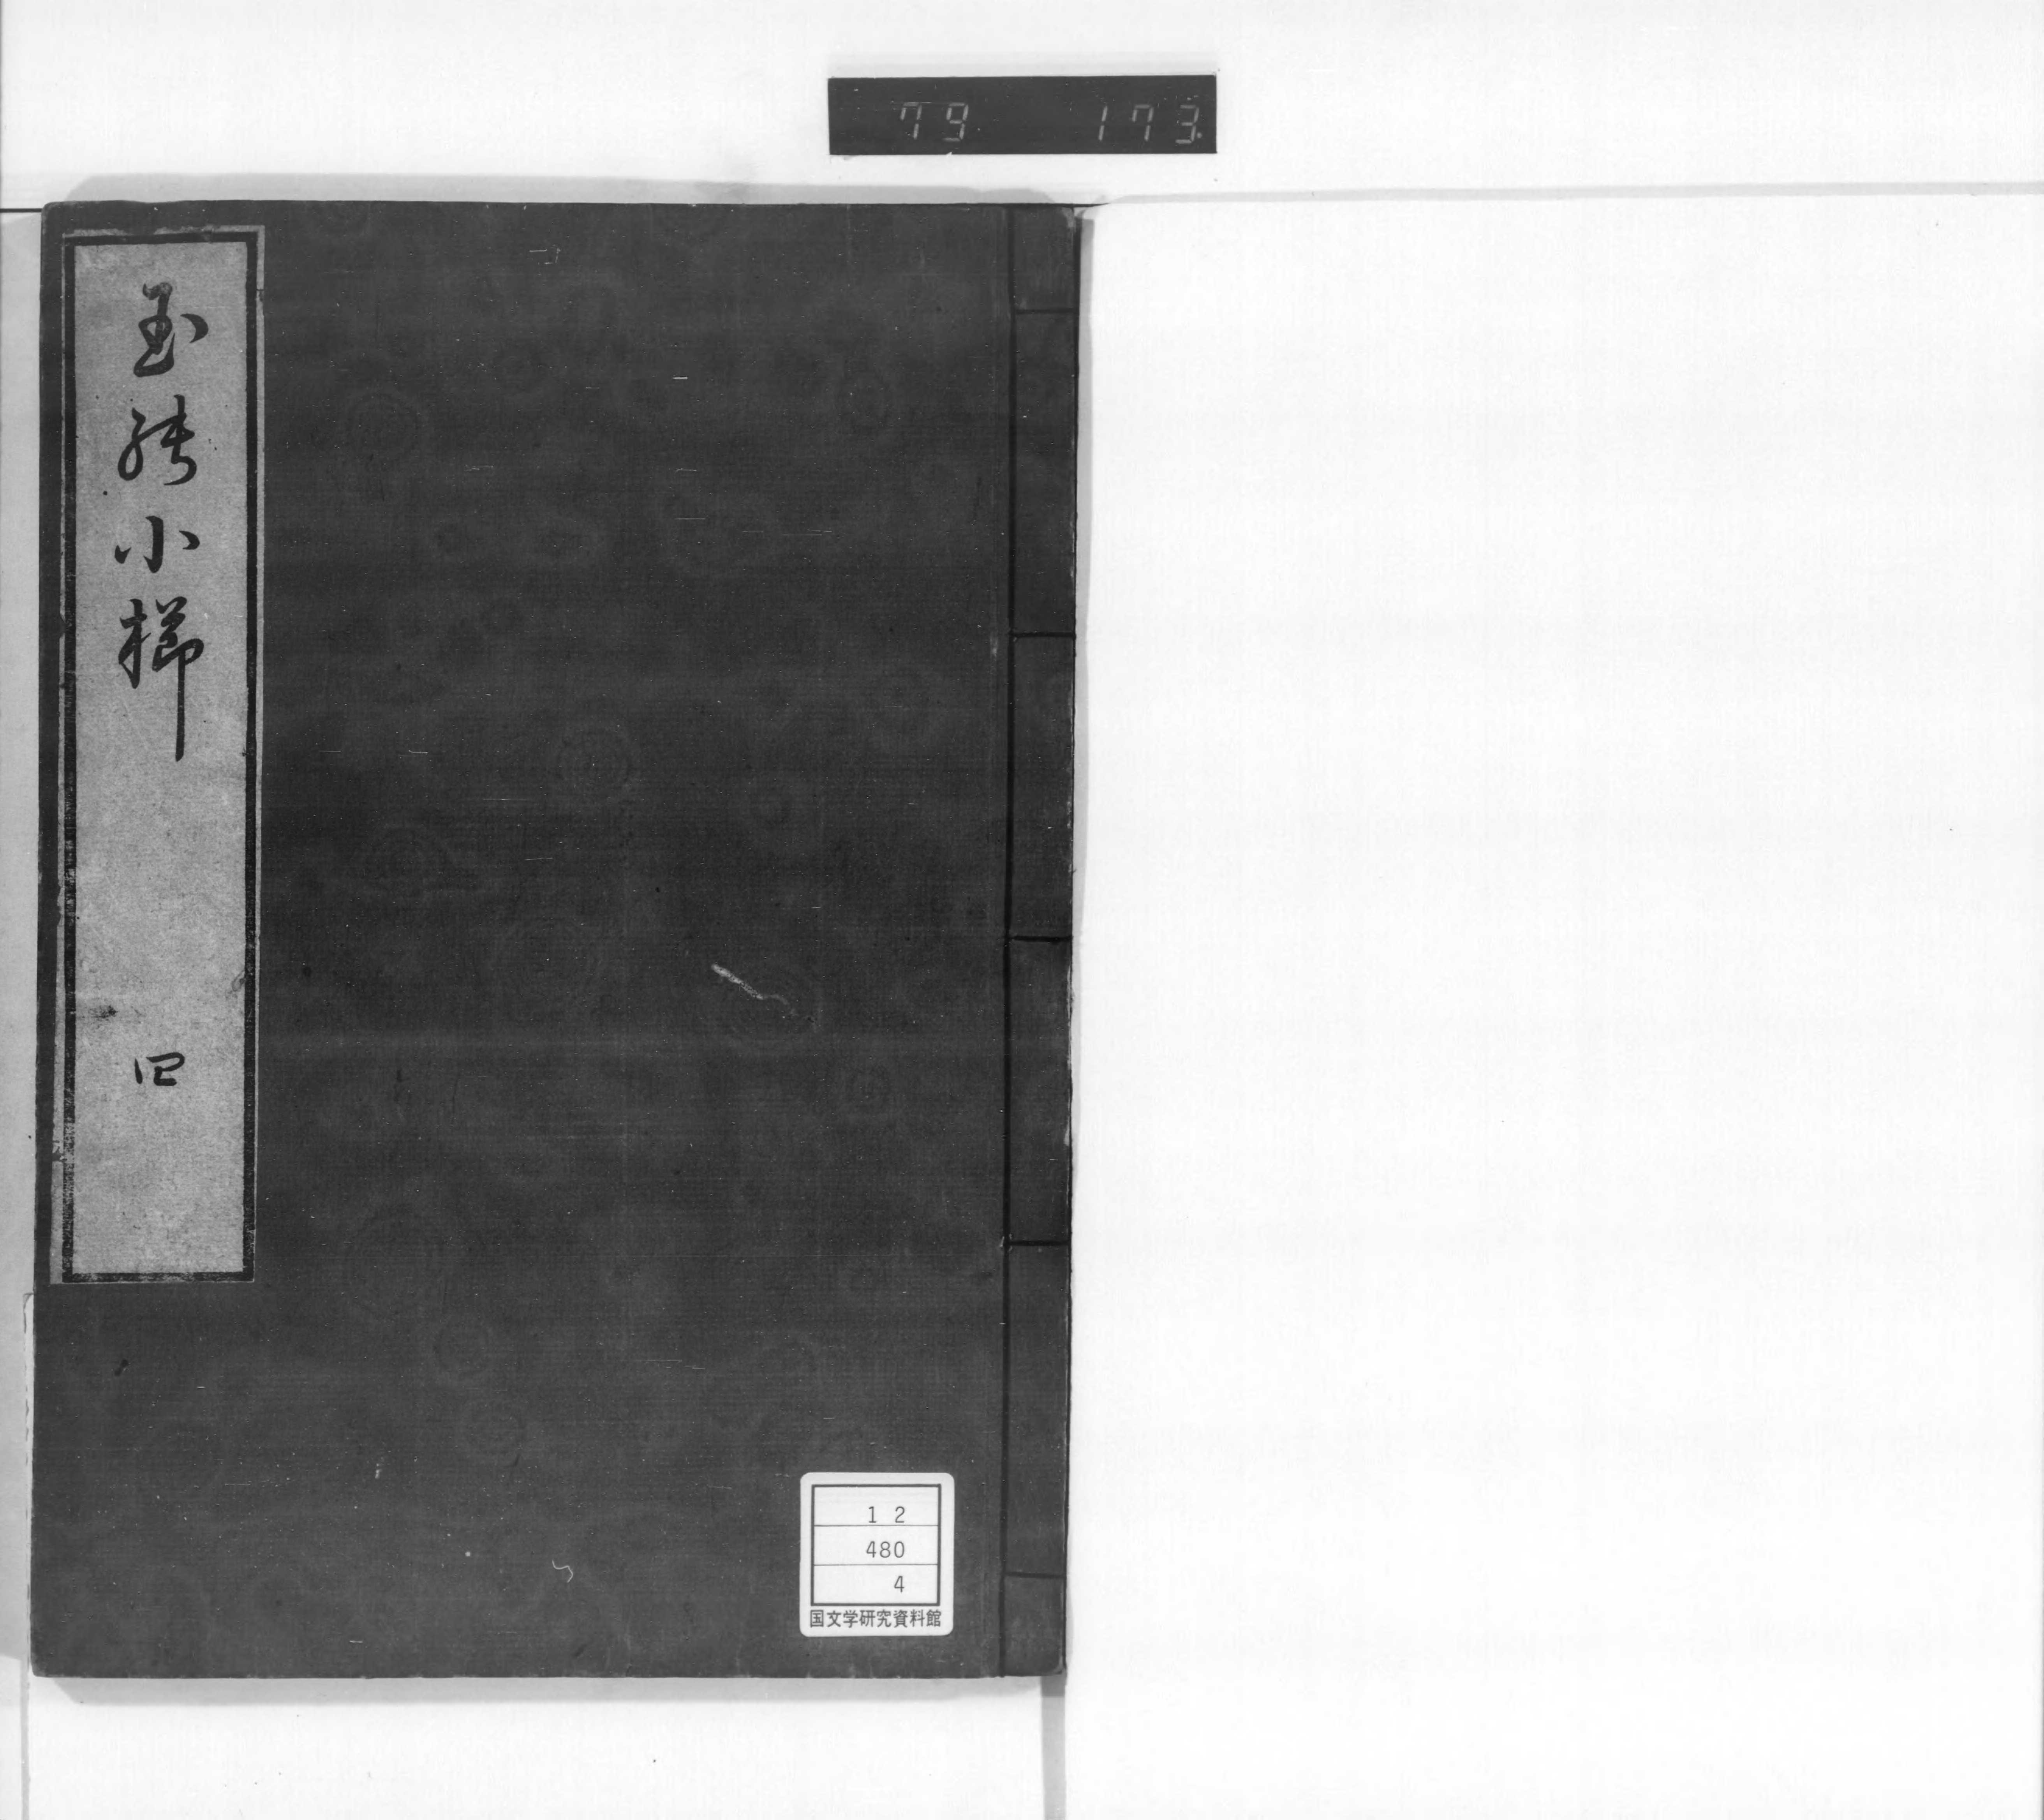 79 173
玉能小櫛
四
12
480
4
国文学研究資料館